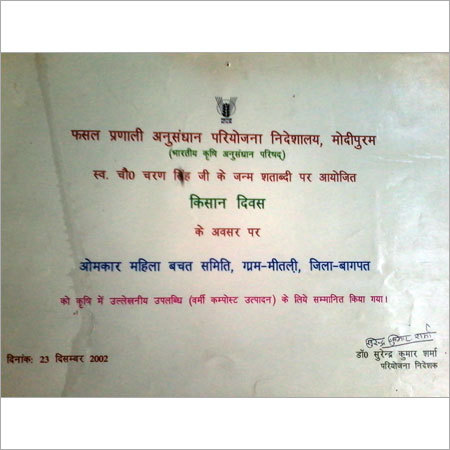 फसल प्रणाली अनुसंधान परियोजना निदेशालय, मोदीपुरम
(भारतीय कृषि अनुसंधान परिषद्)
स्व. चौ0 चरण सिंह जी के जन्म शताब्दी पर आयोजित
किसान दिवस
के अवसर पर
ओमकार महिला बचत समिति, ग्राम-मीतली, जिला-बागपत
को कृषि में उल्लेखनीय उपलब्धि (वर्मी कम्पोस्ट उत्पादन) के लिये सम्मानित किया गया।
सुरेन्द्र कुमार शर्मा
दिनांक: 23 दिसम्बर 2002
डॉ0 सुरेन्द्र कुमार शर्मा
परियोजना निदेशक